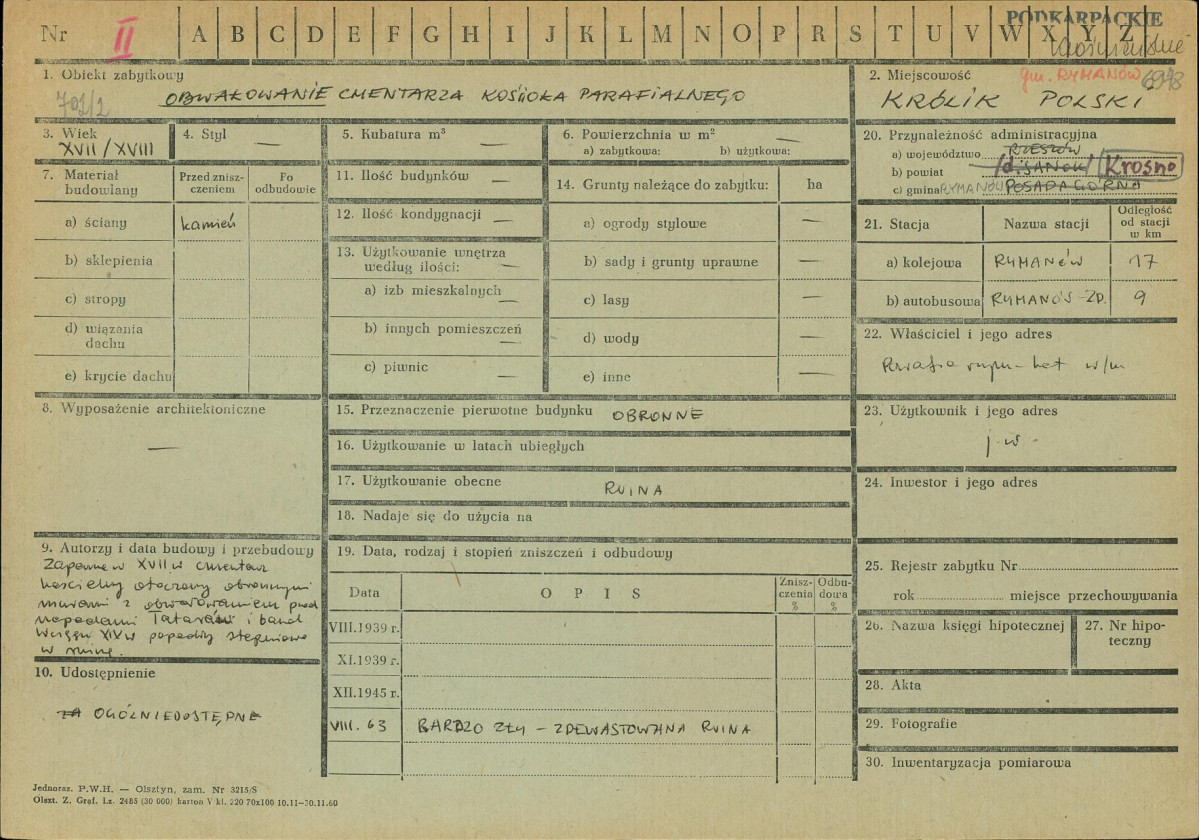 Nr II A B C D E F G H I J K L M N O P R S T U V W X Y Z
PODKARPACKIE
1. Obiekt zabytkowy
701/2
OBWAŁOWANIE CMENTARZA KOŚCIOŁA PARAFIALNEGO
2. Miejscowość gm. RYMANÓW 6978
KRÓLIK POLSKI
3. Wiek
XVII/XVIII
4. Styl
—
5. Kubatura m³
—
6. Powierzchnia w m² —
a) zabytkowa: b) użytkowa:
20. Przynależność administracyjna
a) województwo RZESZÓW
b) powiat /d. SANOK/ Krosno
c) gmina RYMANÓW POSADA GÓRNA
7. Materiał
budowlany
Przed znisz-
czeniem
Po
odbudowie
a) ściany kamień
b) sklepienia
c) stropy
d) wiązania
dachu
e) krycie dachu
11. Ilość budynków —
12. Ilość kondygnacji —
13. Użytkowanie wnętrza
według ilości: —
a) izb mieszkalnych —
b) innych pomieszczeń —
c) piwnic —
14. Grunty należące do zabytku: ha
a) ogrody stylowe —
b) sady i grunty uprawne —
c) lasy —
d) wody —
e) inne —
21. Stacja Nazwa stacji Odległość
od stacji
w km
a) kolejowa RYMANÓW 17
b) autobusowa RYMANÓS-ZD. 9
22. Właściciel i jego adres
Parafia rzym-kat w/m
8. Wyposażenie architektoniczne
—
15. Przeznaczenie pierwotne budynku OBRONNE
16. Użytkowanie w latach ubiegłych
17. Użytkowanie obecne
RUINA
18. Nadaje się do użycia na
23. Użytkownik i jego adres
j.w.
24. Inwestor i jego adres
9. Autorzy i data budowy i przebudowy
Zapewne w XVII w cmentarz
kościelny otoczony obronnymi
murami z obwarowaniem przed
napadami Tatarów i band
W ciągu XIX w popadły stopniowo
w ruinę.
10. Udostępnienie
ZA OGÓLNIEDOSTĘPNE
19. Data, rodzaj i stopień zniszczeń i odbudowy
Data OPIS Znisz-
czenia
%
Odbu-
dowa
%
VIII.1939 r.
XI.1939 r.
XII.1945 r.
VIII. 63 BARDZO ZŁY – ZDEWASTOWANA RUINA
25. Rejestr zabytku Nr
rok miejsce przechowywania
26. Nazwa księgi hipotecznej
27. Nr hipo-
teczny
28. Akta
29. Fotografie
30. Inwentaryzacja pomiarowa
Jednoraz. P.W.H. — Olsztyn, zam. Nr 3215/S
Olszt. Z. Graf. Lz. 2485 (30 000) karton V kl. 220 70x100 10.11—30.11.60